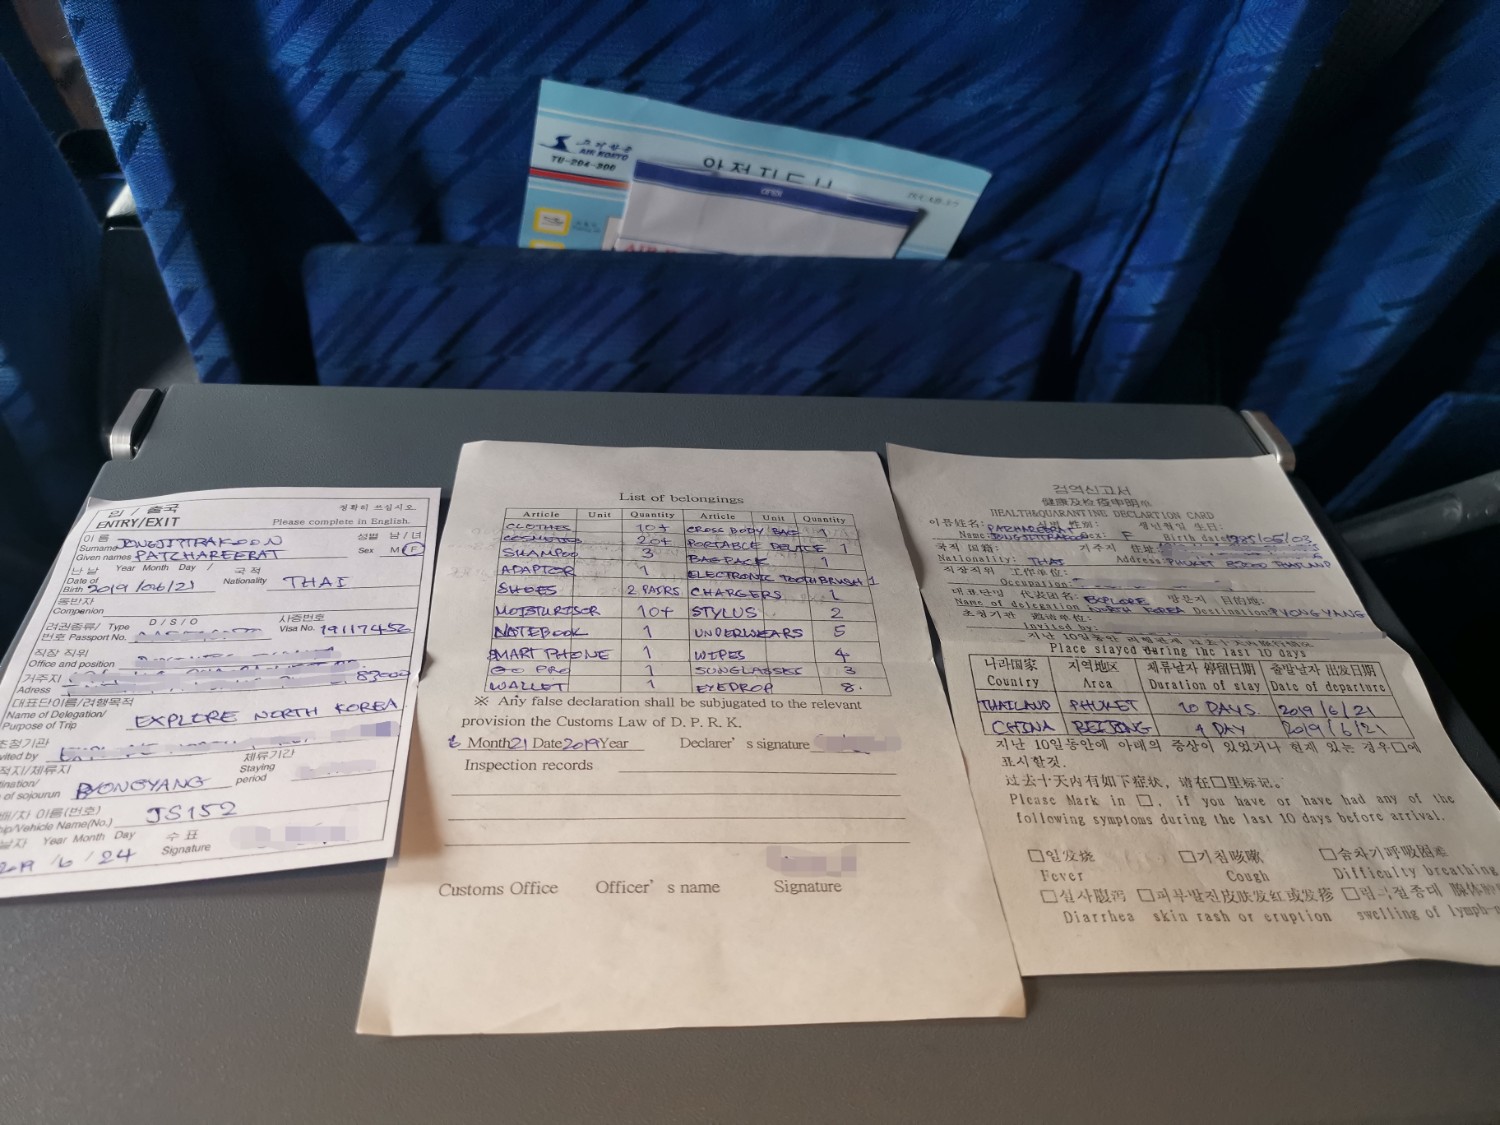 AIR KORYO
TU-204-300
OPEN
입 / 출국
ENTRY/EXIT
정확히 쓰십시오.
Please complete in English.
이 름
Surname JONGJITRAKOON
Given names PATCHAREERAT
성별 남 / 녀
Sex M F
난 날 Year Month Day / 국 적
Date of Birth 2019/06/21 Nationality THAI
동반자
Companion
려권종류/ Type D / S / O 사증번호
번호 Passport No. Visa No. 19117452
직장 직위
Office and position
거주지 83000
Adress
대표단이름/려행목적
Name of Delegation/
Purpose of Trip EXPLORE NORTH KOREA
초청기관
체류기간
Staying
period
of sojourn PYONGYANG
이름(번호)
Vehicle Name(No.) JS152
Year Month Day 수 표
2019 /6 /24 Signature
List of belongings
Article Unit Quantity Article Unit Quantity
CLOTHES 10+ CROSS BODY BAG 1
COSMETICS 20+ PORTABLE DEVICE 1
SHAMPOO 3 BAGPACK 1
ADAPTOR 1 ELECTRONIC TOOTHBRUSH 1
SHOES 2 PAIRS CHARGERS 1
MOISTURISOR 10+ STYLUS 2
NOTEBOOK 1 UNDERWEARS 5
SMART PHONE 1 WIPES 4
GO PRO 1 SUNGLASSES 3
WALLET 1 EYEDROP 8.
※ Any false declaration shall be subjugated to the relevant
provision the Customs Law of D. P. R. K.
6 Month 21 Date 2019 Year Declarer's signature
Inspection records
Customs Office Officer's name Signature
검역신고서
健康及检疫申明
HEALTH&QUARANTINE DECLARTION CARD
이름姓名: PATCHAREERAT 성별 性别: 생년월일 生日:
Name: JONGJITRAKOON Sex: F Birth date: 1985/05/03
국적 国籍: 거주지 住地:
Nationality: THAI Address: PHUKET 83000 THAILAND
직장직위 工作单位:
Occupation:
대표단명 代表团名: EXPLORE 방문지 目的地:
Name of delegation NORTH KOREA Destination PYONGYANG
초청기관 邀请单位:
Invited by:
Place stayed during the last 10 days
나라国家 지역地区 체류날자 停留日期 출발날자 出发日期
Country Area Duration of stay Date of departure
THAILAND PHUKET 10 DAYS 2019/6/21
CHINA BEIJING 1 DAY 2019/6/21
지난 10일동안에 아래의 증상이 있었거나 현재 있는 경우□에
표시할것.
过去十天内有如下症状, 请在□里标记。
Please Mark in □, if you have or have had any of the
following symptoms during the last 10 days before arrival.
□열发烧 □기침咳嗽 □숨차기呼吸困难
Fever Cough Difficulty breathing
□설사腹泻 □피부발진皮肤发红或发疹
Diarrhea skin rash or eruption swelling of lymph